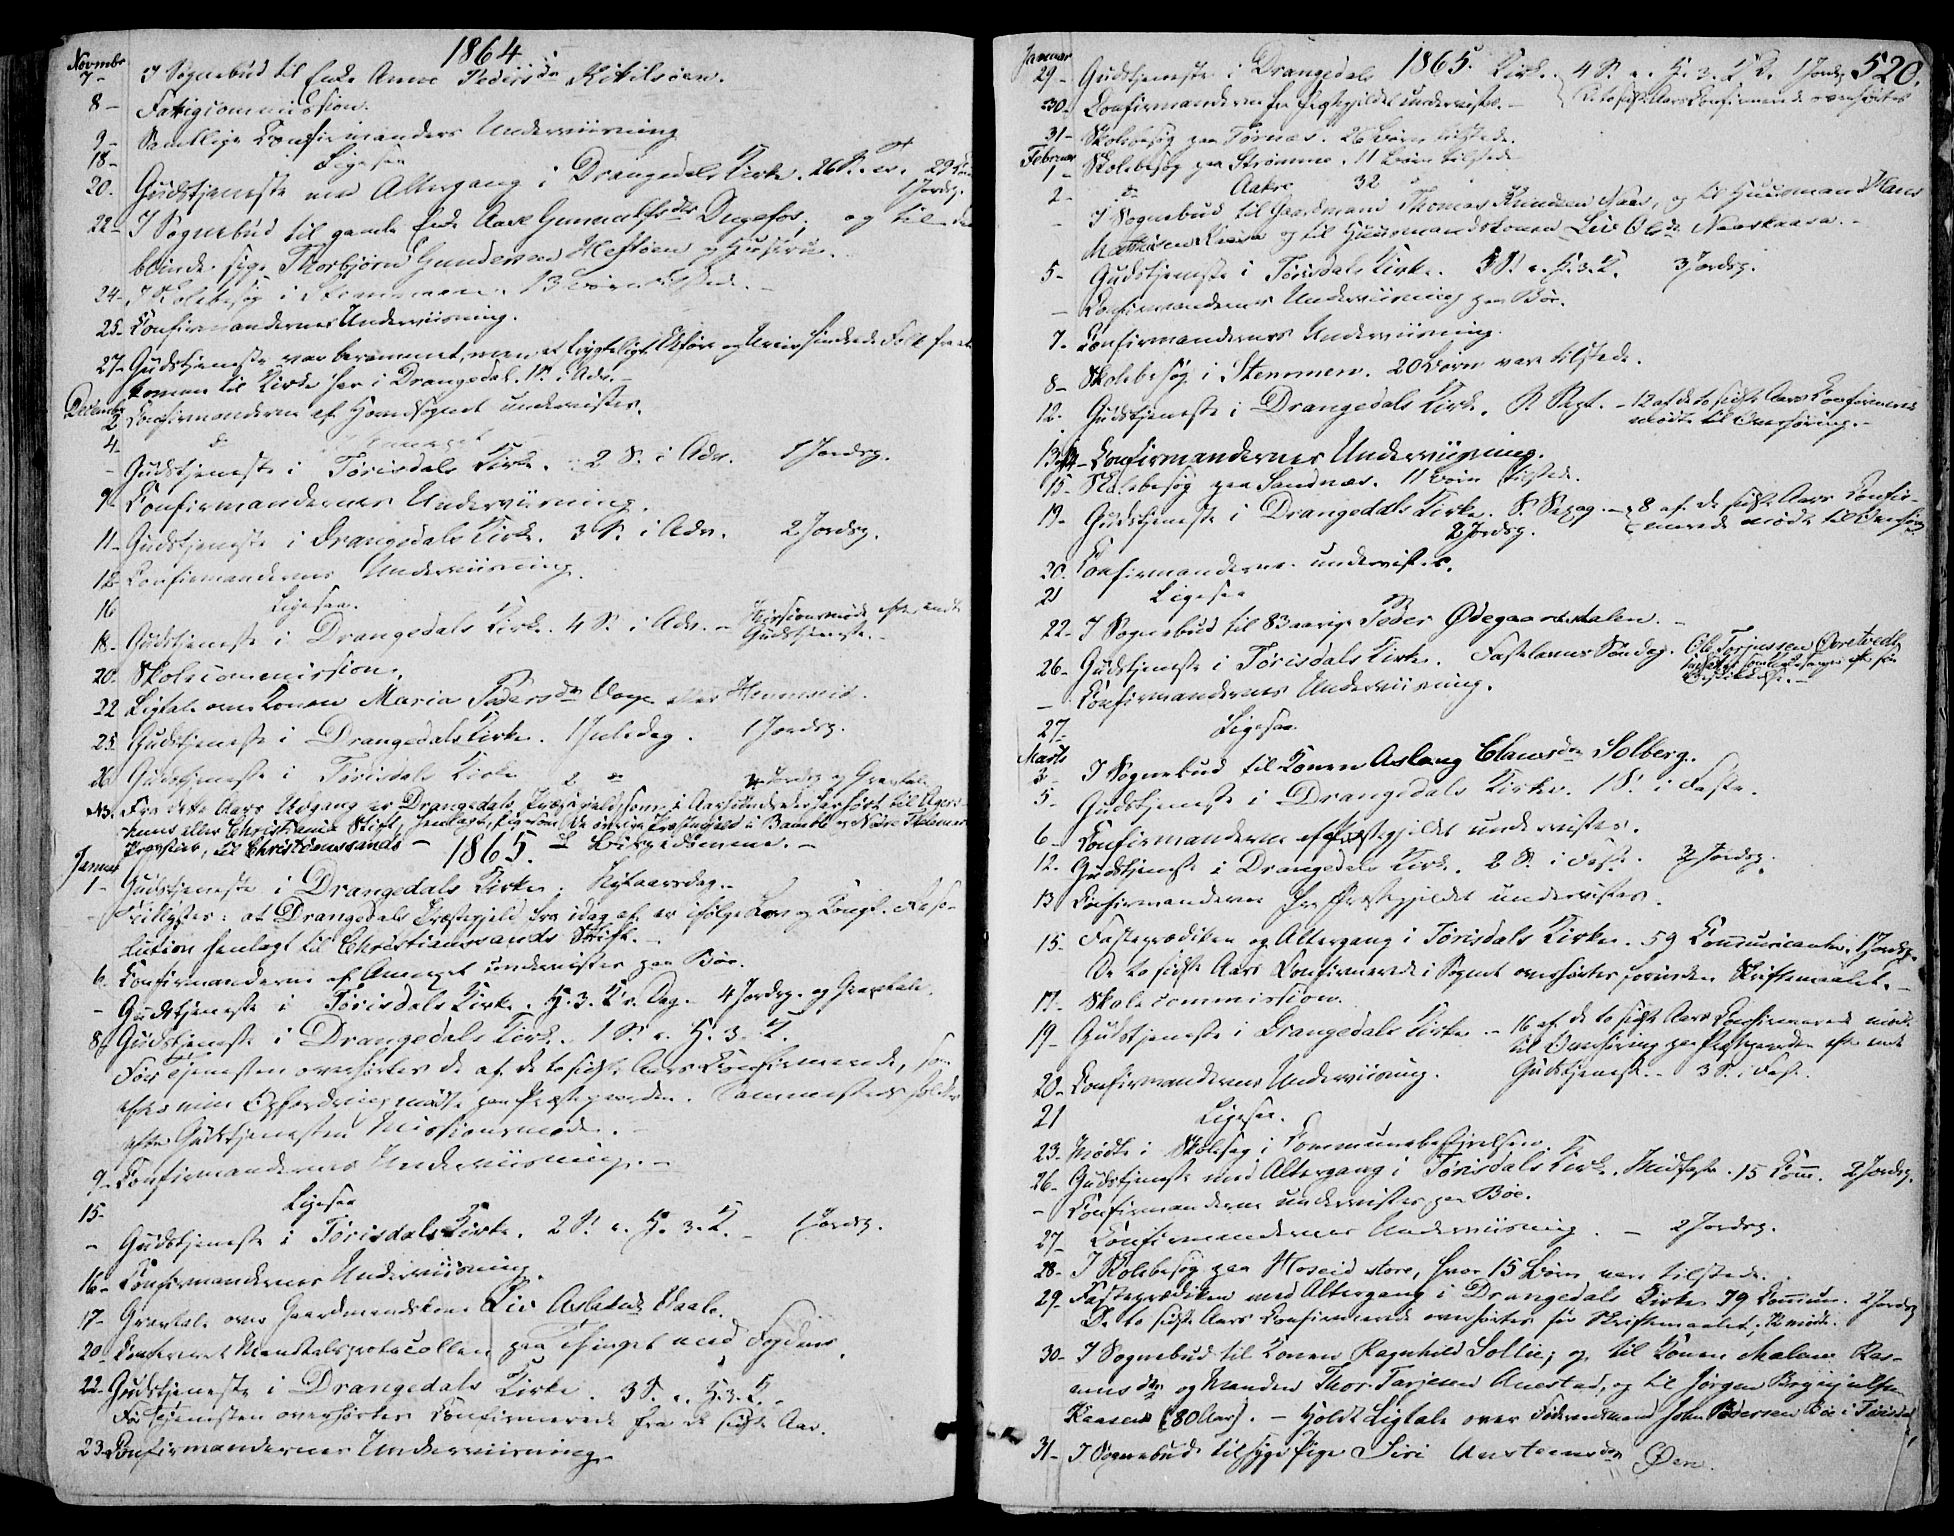 1864
Novmbr
7- I Sognebud til Enke Anne Pedersdr Kitilsöen.
8- Fattigcommission.
9- Samtlige Confirmanders Underviisning
18- Ligesaa
20. Gudstjeneste med Altergang i Drangedals Kirke. 26 S. e. Tr. 29 Com. 1 Jordsp.
22- I Sognebud til gamle Enke Aase Gunnulfsdr Dugefos; og til den
blinde Thorbjörn Gundersen Heftöen og Hustru.
24- I Skolebesög i Stemmen. 13 Börn tilstede.-
25- Confirmandernes Underviisning.
27- Gudstjeneste var berammet, men et frygteligt Uföre og Uveir hindrede Folk fra at
komme til Kirke her i Drangedal. 1 S. i Adv.-
December
2 Confirmanderne af Hovedsognet undervistes.
4- do Annexet
- Gudstjeneste i Törisdals Kirke. 2 S. i Adv. 1 Jordsp.
9- Confirmandernes Underviisning.
11- Gudstjeneste i Drangedals Kirke. 3 S. i Adv. 2 Jordsp.
12- Confirmandernes Underviisning.
16 Ligesaa.
18- Gudstjeneste i Drangedals Kirke. 4 S. i Adv. - Missionsmöde efter endt
Gudstjeneste.-
20. Skolecommission.
22 Ligtale over Konen Maria Pedersdr
25- Gudstjeneste i Drangedals Kirke. 1 Juledag. 1 Jordsp.
26 Gudstjeneste i Törisdals Kirke 2 do Jordsp. og Gravtale
NB. Fra dette Aars Udgang er Drangedals Præstegjeld, som i Aarhundreder har hört til Agers-
huus eller Christiania Stift, henlagt, ligesom de övrige Præstegjeld i Bamble og Nedre Thelemarkens
Provstier, til Christianssands Bispedömme.-
1865.
Januar
1- Gudstjeneste i Drangedals Kirke. Nytaarsdag.-
- Tillystes: at Drangedals Præstegjeld fra idag af er ifölge Lov og Kongl. Reso-
lution henlagt til Christianssands Stift.-
6- Confirmanderne af Annexet undervistes paa Böe.
- Gudstjeneste i Törisdals Kirke. H. 3. K. Dag. 4 Jordsp. og Gravtale.
8- Gudstjeneste i Drangedals Kirke. 1 S. e. H. 3. K.
För Tjenesten overhörtes de af de to sidste Aars Confirmerede, som
efter min Opfordring mödte paa Præstegaarden. Sammesteds holdtes
efter Gudstjenesten Missionsmöde.-
9- Confirmandernes Underviisning.-
15- Ligesaa
- Gudstjeneste i Törisdals Kirke. 2 S. e. H. 3. K.- 1 Jordsp.
16- Confirmandernes Underviisning.
17- Gravtale over Gaardmandskone Liv Aslaksdr Vaale.
20- Confereret Mandtalsprotocollen paa Thinget med Fogden.
22- Gudstjeneste i Drangedals Kirke. 3 S. e. H. 3. K.-
För Tjenesten overhörtes Confirmerede fra de sidste Aar.
23- Confirmandernes Underviisning.
1865. 520.
Januar
29- Gudstjeneste i Drangedals Kirke. 4 S. e. H. 3. K. D. 1 Jordsp.
De to sidste Aars Confirmerede overhörtes
30- Confirmanderne fra Præstegjeldet undervistes.-
31- Skolebesög paa Törnes. 26 Börn tilstede.
Februar
1- Skolebesög paa Strömme. 11 Börn tilstede
2- do Aakre 32 do
- I Sognebud til Gaardmand Thomas Knudsen Naas, og til Huusmand Hans
Mathisen og til Huusmandskonen Liv Olsdr Naaskaasa.-
5- Gudstjeneste i Törisdals Kirke. 5 S. e. H. 3. K. 3 Jordsp.
- Confirmandernes Underviisning paa Böe.
7- Confirmandernes Underviisning.
8- Skolebesög i Stemmen. 20 Börn vare tilstede.
12. Gudstjeneste i Drangedals Kirke. S. Sept. - 12 af de to sidste Aars Confirmerede
mödte til Overhöring.-
13-14- Confirmandernes Underviisning.
15- Skolebesög paa Sandnæs. 11 Börn tilstede.
19- Gudstjeneste i Drangedals Kirke. S. Sexag. - 8 af de sidste Aars Confir-
merede mödte til Overhöring
2 Jordsp.
20. Confirmanderne undervistes.
21 Ligesaa
22- I Sognebud til 83 aarige Peder Ödegaardsdalen.-
26- Gudstjeneste i Törisdals Kirke. Fastelavns Söndag. Ole Torjussen Övretvedt
- Confirmandernes Underviisning.
27- Ligesaa.
Marts
3- I Sognebud til Konen Aslaug Clausdr Solberg.
5- Gudstjeneste i Drangedals Kirke. 1 S. i Faste.
6- Confirmanderne af Præstegjeldet undervistes.
12- Gudstjeneste i Drangedals Kirke. 2 S. i Fast. 2 Jordsp.
13 Confirmanderne fra Præstegjeldet undervistes.
15- Fasteprædiken og Altergang i Törisdals Kirke. 59 Communicanter. 1 Jordsp.
De to sidste Aars Confirmerede i Sognet overhörtes forinden Skriftemaalet.-
17- Skolecommission.
19- Gudstjeneste i Drangedals Kirke - 16 af de to sidste Aars Confirmerede mödte
til Overhöring paa Præstegaarden efter endt
Gudstjeneste.- 3 S. i Fast.
20- Confirmandernes Underviisning.
21 Ligesaa.
23- Mödte i Skolesag i Communebestyrelsen
26- Gudstjeneste med Altergang i Törisdals Kirke. Midfaste. 15 Comm. 2 Jordsp.
- Confirmanderne undervistes paa Böe.
27- Confirmandernes Underviisning. - 2 Jordsp.
28- I Skolebesög paa Hoseid store, hvor 15 Börn vare tilstede.
29- Fasteprædiken med Altergang i Drangedals Kirke 79 Commun. 2 Jordsp
De to sidste Aars Confirmerede overhörtes för Skriftemaalet; 12 mödte.
30- I Sognebud til Konen Ragnhild Sollie; og til Konen Malene Ras-
musdr og Manden Thor Tarjesen Anestad, og til Jörgen Brynjulfsen
Kaasen (80 Aar). - Holdt Ligtale over Föderaadsmand John Pedersen Böe i Törisdal
31- I Sognebud til syge Pige Siri Austeensdr Öen.